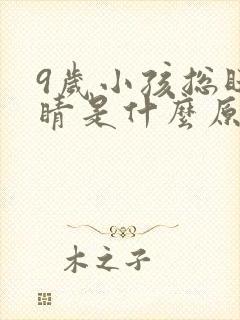 9歲小孩総
睛是什麼原
木之子